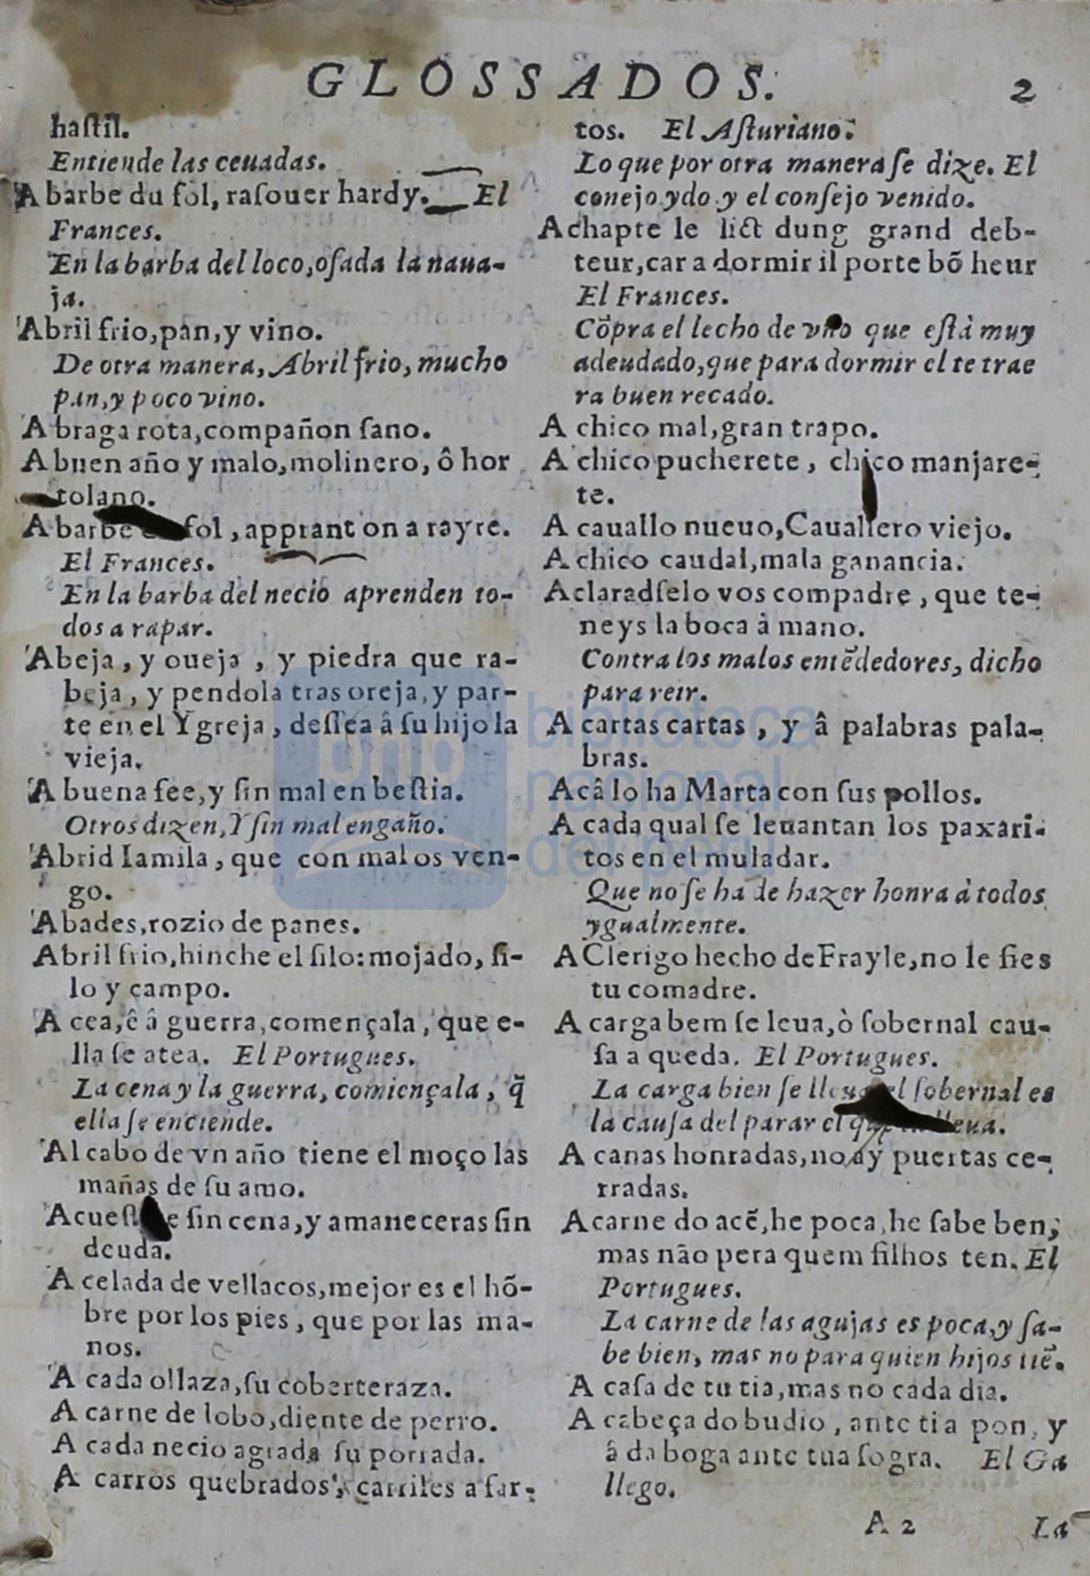 GLOSSADOS. 2
haſtil.
Entiende las ceuadas.
A barbe du fol, raſouer hardy. El
Frances.
En la barba del loco, oſada la naua-
ja.
Abril frio, pan, y vino.
De otra manera, Abril frio, mucho
pan, y poco vino.
A braga rota, compañon ſano.
A buen año y malo, molinero, ô hor
tolano.
A barbe fol, apprant on a rayre.
El Frances.
En la barba del necio aprenden to-
dos a rapar.
Abeja, y oueja, y piedra que ra-
beja, y pendola tras oreja, y par-
te en el Ygreja, deſſea â ſu hijo la
vieja.
A buena fee, y ſin mal en beſtia.
Otros dizen, Y ſin mal engaño.
Abrid Iamila, que con mal os ven-
go.
Abades, rozio de panes.
Abril frio, hinche el ſilo: mojado, ſi-
lo y campo.
A cea, ê â guerra, començala, que e-
lla ſe atea. El Portugues.
La cena y la guerra, comiençala, q̃
ella ſe enciende.
Al cabo de vn año tiene el moço las
mañas de ſu amo.
Acueſ e ſin cena, y amaneceras ſin
deuda.
A celada de vellacos, mejor es el hõ-
bre por los pies, que por las ma-
nos.
A cada ollaza, ſu coberteraza.
A carne de lobo, diente de perro.
A cada necio agrada ſu porrada.
A carros quebrados, carriles a far-
tos. El Aſturiano.
Lo que por otra manera ſe dize. El
conejo ydo y el conſejo venido.
Achapte le lict dung grand deb-
teur, car a dormir il porte bõ heur
El Frances.
Cõpra el lecho de vno que eſtà muy
adeudado, que para dormir el te trae
ra buen recado.
A chico mal, gran trapo.
A chico pucherete, chico manjare-
te.
A cauallo nueuo, Cauallero viejo.
A chico caudal, mala ganancia.
Aclaradſelo vos compadre, que te-
neys la boca à mano.
Contra los malos entẽdedores, dicho
para reir.
A cartas cartas, y â palabras pala-
bras.
Acâ lo ha Marta con ſus pollos.
A cada qual ſe leuantan los paxari-
tos en el muladar.
Que no ſe ha de hazer honra à todos
ygualmente.
A Clerigo hecho de Frayle, no le fies
tu comadre.
A carga bem ſe leua, ò ſobernal cau-
ſa a queda. El Portugues.
La carga bien ſe lleua el ſobernal es
la cauſa del parar el que lleua.
A canas honradas, no ay puertas ce-
rradas.
A carne do acẽ, he poca, he ſabe ben,
mas não pera quem filhos ten. El
Portugues.
La carne de las agujas es poca, y ſa-
be bien, mas no para quien hijos tiẽ.
A caſa de tu tia, mas no cada dia.
A cabeça do budio, ante ti a pon, y
â da boga ante tua ſogra. El Ga
llego.
A 2 La
biblioteca
nacional
del perú
bnp